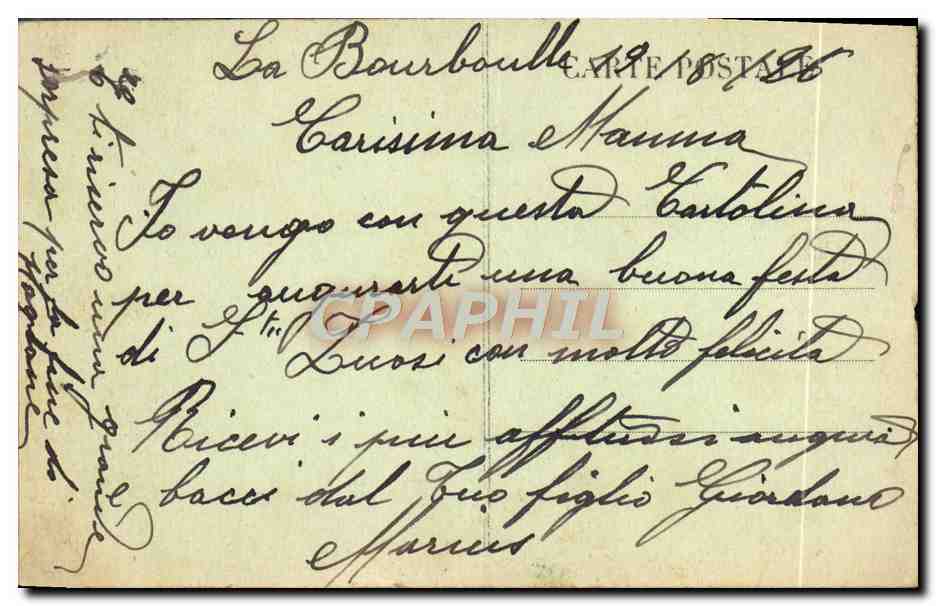 La Bourboulle 19/8/26
CARTE POSTALE
Carisima Mamma
Io vengo con questa Cartolina
per augurarti una buona festa
di St
con molte felicità
Ricevi i piu affttuosi auguri
e bacci dal Tuo figlio Giordano
Marius
ti riservo una grande
sorpresa per la fine di
Stagione
CPAPHIL